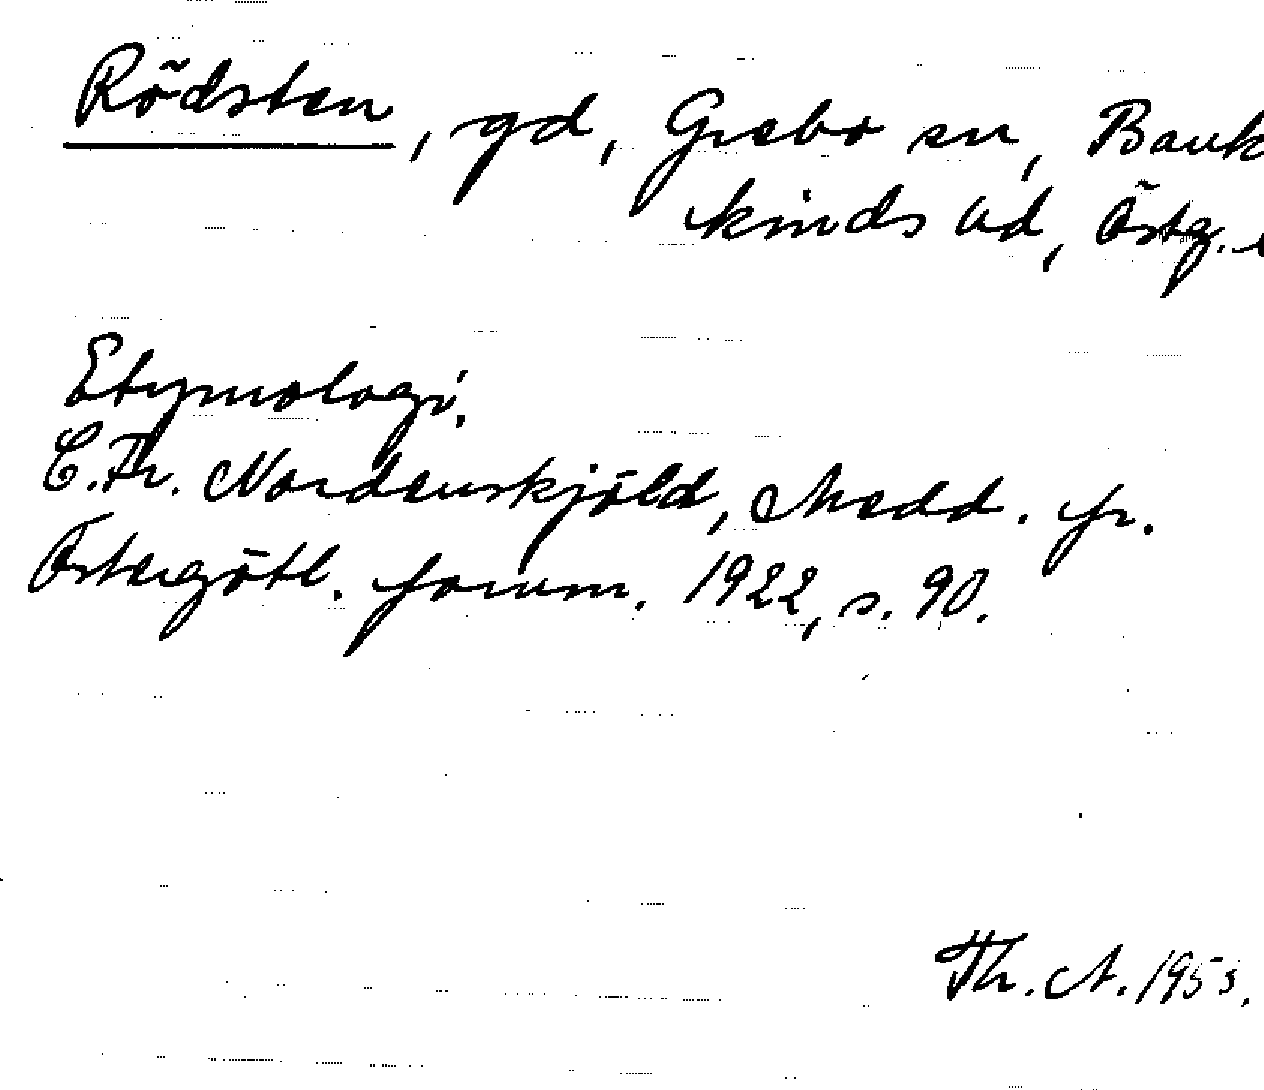 Rödsten, gd, Grebo sn, Bank
kinds hd, Östg. l
Etymologi.
C. Fr. Nordenskjöld, Medd. fr.
Östergötl. fornm. 1922, s. 90.
Th. A. 1953.